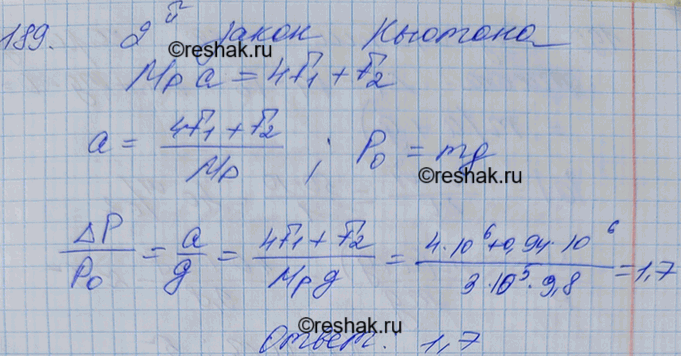 189. 2й закон Ньютона
©reshak.ru
Mp a = 4F1 + F2
a = (4F1 + F2) / Mp ; P0 = mg
©reshak.ru
ΔP / P0 = a / g = (4F1 + F2) / (Mp g) = (4·10^6 + 0,94·10^6) / (3·10^5·9,8) = 1,7
©reshak.ru
Ответ: 1,7